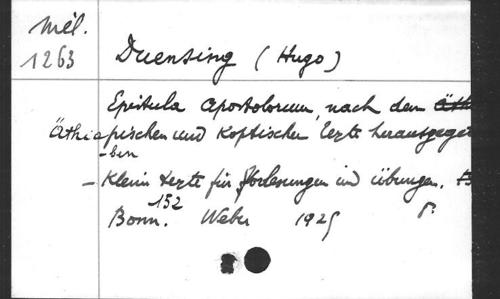 Mél.
1263
Duensing (Hugo)
Epistula Apostolorum, nach dem Äth
Äthiopischen und Koptischen Texte herausgege
-ben
- Kleine texte für Vorlesungen und übungen.
152
Bonn. Weber 1925 8°